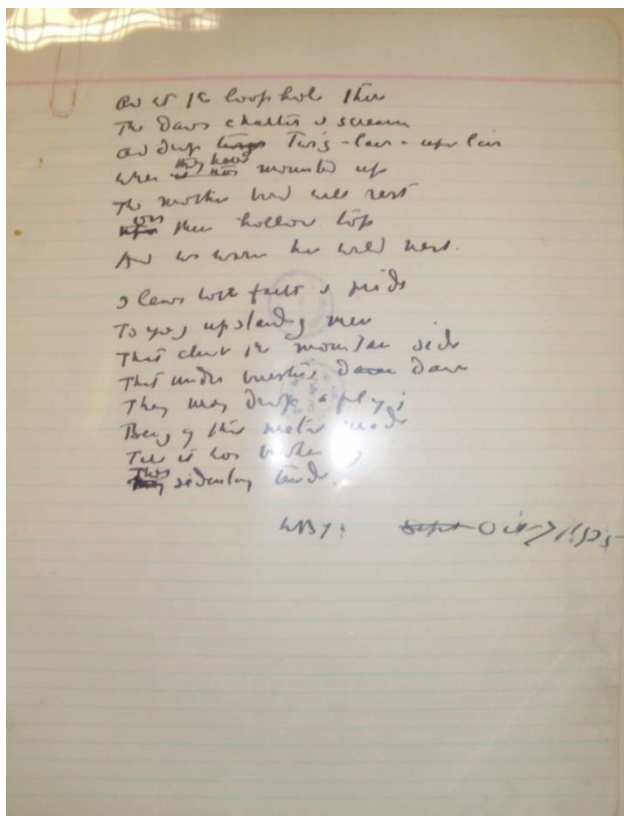 As at the loophole there
The daws chatter & scream
And drop twigs layer upon layer
When they have mounted up
The mother bird will rest
on their hollow top
And so warm her wild nest.
I leave both faith & pride
To young upstanding men
That climb the mountain side
That under bursting dawn
They may drop a fly;
Being of this metal made
Till it was broken by
This sedentary trade.
WBY. Sept Oct 7 1925